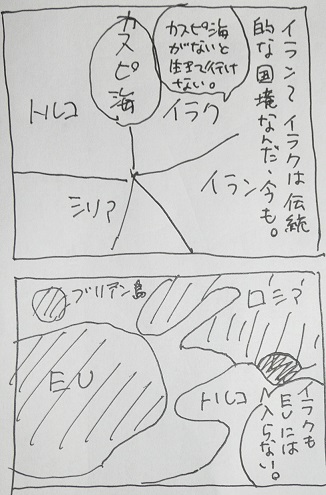 イランとイラクは伝統
的な国境なんだ、今も。
カスピ海
がないと
生きて行け
ない。
カスピ海
トルコ
イラク
イラン
シリア
ブリテン島
ロシア
EU
トルコ
イラクも
EUには
入らない。